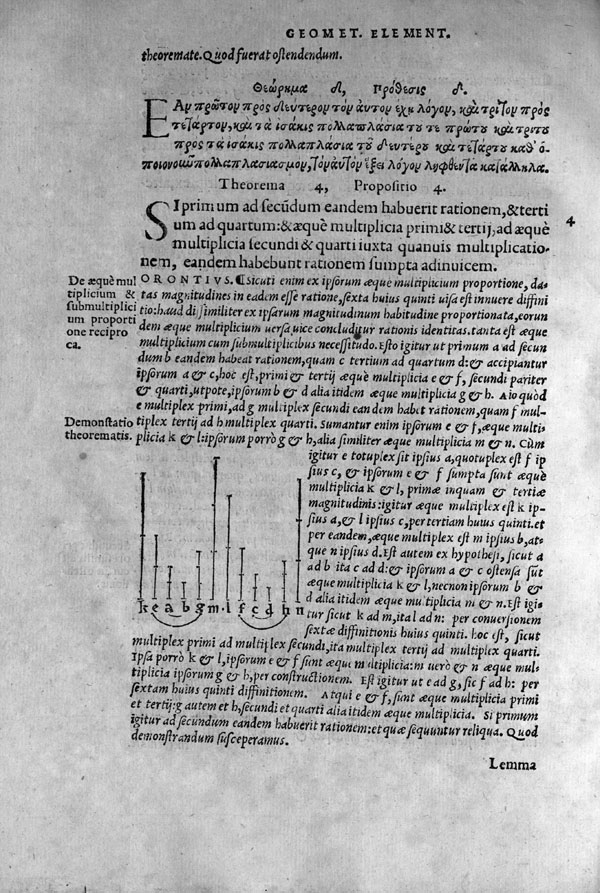 GEOMET. ELEMENT.
theoremate. Quod fuerat ostendendum.
Θεώρημα δ, Πρόθεσις δ.
Εαν πρῶτον πρὸς δεύτερον τὸν αυτον ἔχῃ λόγον, καὶ τρίτον πρὸς
τέταρτον, καὶ τὰ ἰσάκις πολλαπλάσια τοῦ τε πρώτου καὶ τρίτου
προς τὰ ἰσάκις πολλαπλάσια τοῦ δευτέρου καὶ τετάρτου καθ᾽ ὁ-
ποιονοιοῦν πολλαπλασιασμον, τὸν αυτὸν ἕξει λόγον ληφθέντα κατάλληλα.
Theorema 4, Propositio 4.
SI primum ad secūdum eandem habuerit rationem, & terti
um ad quartum: & æquè multiplicia primi & tertij, ad æquè
multiplicia secundi & quarti iuxta quanuis multiplicatio-
nem, eandem habebunt rationem sumpta adinuicem.
4
De æquè mul
tiplicium &
submultiplici
um proporti
one recipro
ca.
ORONTIVS. ¶Sicuti enim ex ipsorum æque multiplicium proportione, da-
tas magnitudines in eadem esse ratione, sexta huius quinti uisa est innuere diffini
tio: haud dissimiliter ex ipsarum magnitudinum habitudine proportionata, eorun
dem æque multiplicium uersa uice concluditur rationis identitas. tanta est æque
multiplicium cum submultiplicibus necessitudo. Esto igitur ut primum a ad secun
dum b eandem habeat rationem, quam c tertium ad quartum d: & accipiantur
ipsorum a & c, hoc est, primi & tertij æquè multiplicia e & f, secundi pariter
& quarti, utpote, ipsorum b & d alia itidem æque multiplicia g & h. Aio quòd
e multiplex primi, ad g multiplex secundi eandem habet rationem, quam f mul-
tiplex tertij ad h multiplex quarti. Sumantur enim ipsorum e & f, æque multi-
plicia k & l: ipsorum porrò g & h, alia similiter æque multiplicia m & n. Cùm
Demonstatio
theorematis.
igitur e totuplex sit ipsius a, quotuplex est f ip
sius c, & ipsorum e & f sumpta sunt æquè
multiplicia k & l, primæ inquam & tertiæ
magnitudinis: igitur æque multiplex est k ip-
sius a, & l ipsius c, per tertiam huius quinti. et
per eandem, æque multiplex est m ipsius b, at-
que n ipsius d. Est autem ex hypothesi, sicut a
ad b ita c ad d: & ipsorum a & c ostensa sūt
æque multiplicia k & l, necnon ipsorum b &
d alia itidem æque multiplicia m & n. Est igi-
tur sicut k ad m, ita l ad n: per conuersionem
sextæ diffinitionis huius quinti. hoc est, sicut
k e a b g m l f c d h n
multiplex primi ad multiplex secundi, ita multiplex tertij ad multiplex quarti.
Ipsa porrò k & l, ipsorum e & f sunt æque multiplicia: m uerò & n æque mul-
tiplicia ipsorum g & h, per constructionem. Est igitur ut e ad g, sic f ad h: per
sextam huius quinti diffinitionem. Atqui e & f, sunt æque multiplicia primi
et tertij: g autem et h, secundi et quarti alia itidem æque multiplicia. Si primum
igitur ad secundum eandem habuerit rationem: et quæ sequuntur reliqua. Quod
demonstrandum susceperamus.
Lemma